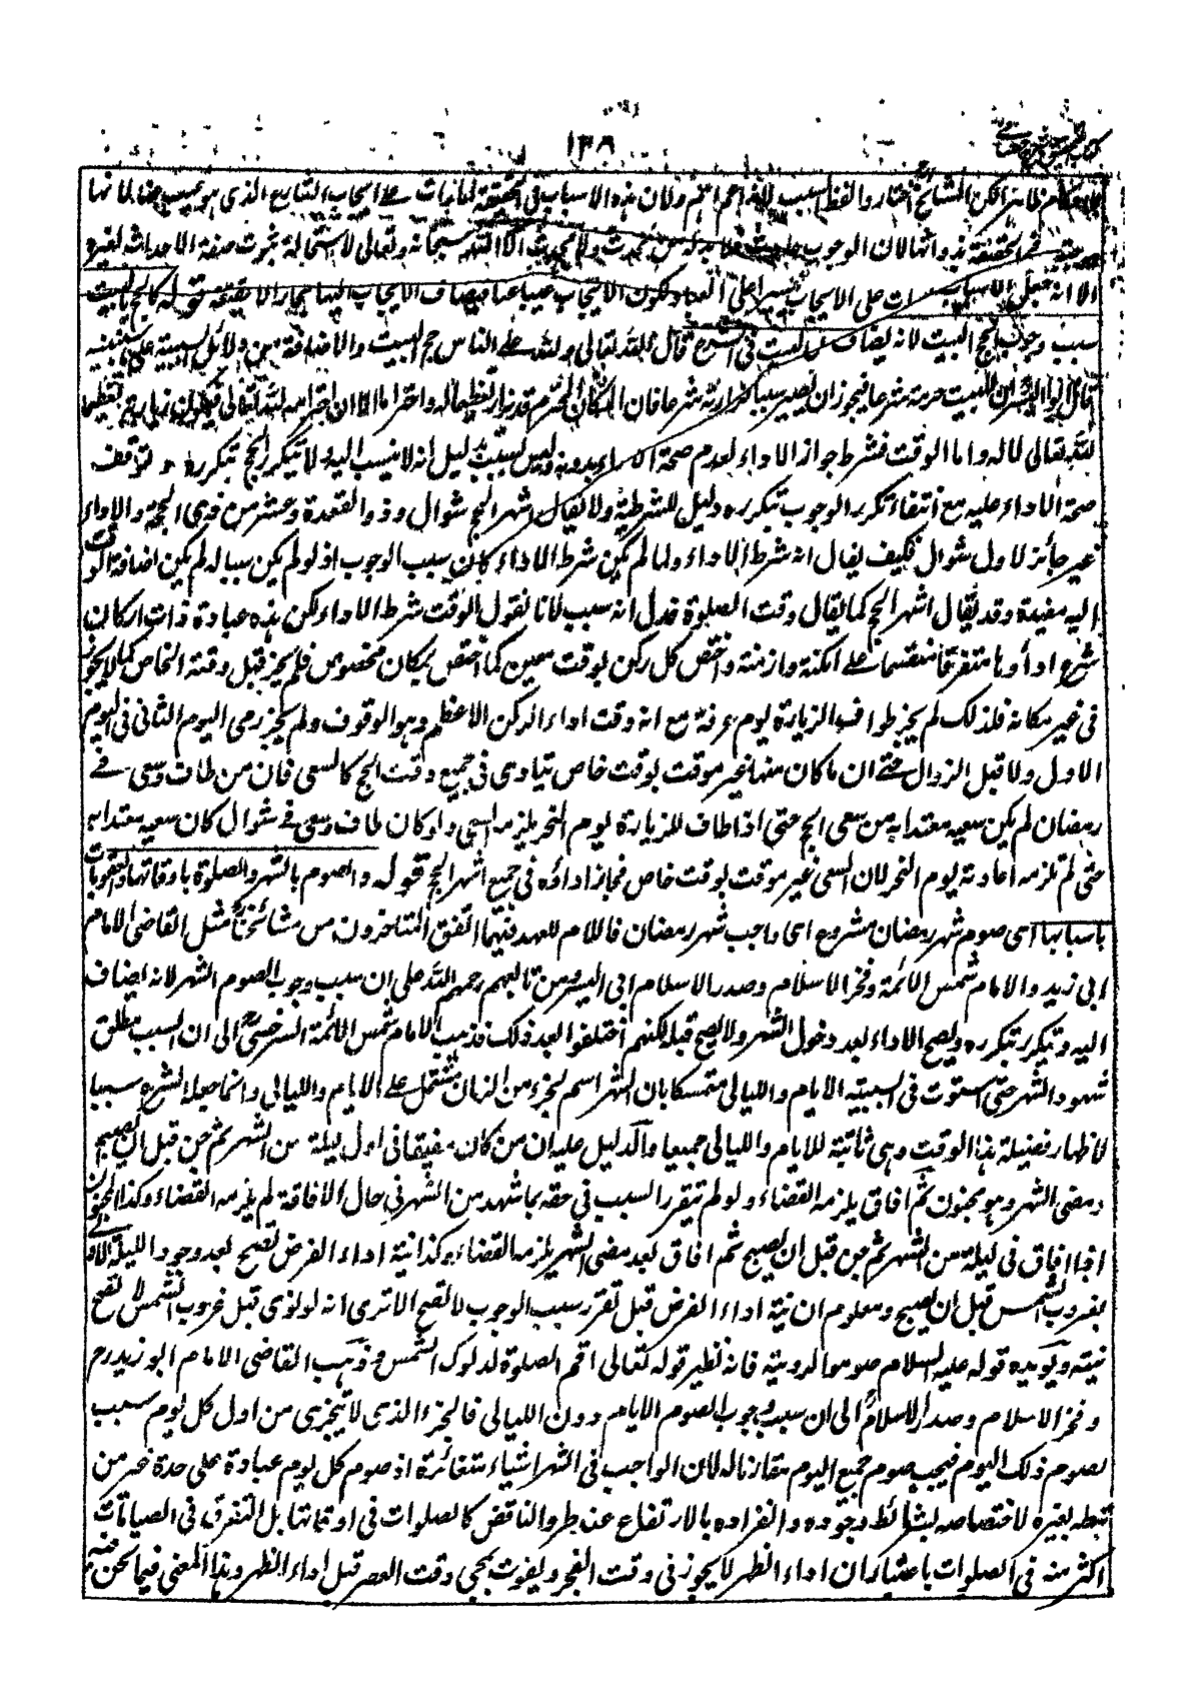 ١٣٨
لكن المشايخ اختاروا لفظ السبب لانه اعم ولان هذه الاسباب فى الحقيقة امارات على ايجاب الشارع الذى هو غيب عنا لا انها
فى الحقيقة بذواتها لان الوجوب حادث فلا بد له من محدث ولا محدث الا الله سبحانه وتعالى لاستحالة ثبوت صفة الاحداث لغيره
الا انه جعل الاسباب امارات على الايجاب تيسيرا على العباد لكون الايجاب غيبا عنا فيضاف الايجاب اليها مجازا لا حقيقة قوله كالحج بالبيت
سبب وجوب الحج البيت لانه يضاف الى البيت فى الشرع قال الله تعالى ولله على الناس حج البيت والاضافة من دلائل السببية على ما سنبينه
للبيت حرمة شرعا فيجوز ان يصير سببا لزيارته شرعا فان المكان المحترم قد يزار تعظيما له واحتراما الا ان احترامه لله تعالى فيكون زيارته تعظيما
لله تعالى لا له واما الوقت فشرط جواز الاداء لعدم صحة الاداء بدونه وليس بسبب بدليل انه لا ينسب اليه ولا يتكرر الحج بتكرره وتوقف
صحة الاداء عليه مع انتفاء تكرر الوجوب بتكرره دليل للشرطية ولا يقال اشهر الحج شوال وذو القعدة وعشر من ذى الحجة والاداء
غير جائز لاول شوال فكيف يقال انه شرط الاداء ولما لم يكن شرط الاداء كان سبب الوجوب اذ لو لم يكن سببا له لم يكن اضافة الوقت
اليه مفيدة وقد يقال اشهر الحج كما يقال وقت الصلوة فدل انه سبب لانا نقول الوقت شرط الاداء ولكن هذه عبادة ذات اركان
شرع اداؤها متفرقا منقسما على امكنة وازمنة واختص كل ركن بوقت معين كما اختص بمكان مخصوص فلم يجز قبل وقته الخاص كما لا يجوز
فى غير مكانه فلذلك لم يجز طواف الزيارة يوم عرفة مع انه وقت اداء الركن الاعظم وهو الوقوف ولم يجز رمى اليوم الثانى فى اليوم
الاول ولا قبل الزوال حتى ان ما كان منها غير موقت بوقت خاص يتأدى فى جميع وقت الحج كالسعى فان من طاف وسعى فى
رمضان لم يكن سعيه معتدا به من سعى الحج حتى اذا طاف للزيارة يوم النحر يلزمه السعى ولو كان طاف وسعى فى شوال كان سعيه معتدا به
حتى لم تلزمه اعادته يوم النحر لان السعى غير موقت بوقت خاص فجاز اداؤه فى جميع اشهر الحج قوله والصوم بالشهر والصلوة باوقاتها والعقوبات
باسبابها اى صوم شهر رمضان مشروع اى واجب شهر رمضان فاللام للعهد فيهما اتفق المتاخرون من مشائخنا مثل القاضى الامام
ابى زيد والامام شمس الائمة وفخر الاسلام وصدر الاسلام ابى اليسر ومن تابعهم رحمهم الله على ان سبب وجوب الصوم الشهر لانه يضاف
اليه ويتكرر بتكرره ويصح الاداء بعد دخول الشهر ولا يصح قبله لكنهم اختلفوا بعد ذلك فذهب الامام شمس الائمة السرخسى الى ان السبب مطلق
شهود الشهر حتى استوت فى السببية الايام والليالى متمسكا بان الشهر اسم لجزء من الزمان مشتمل على الايام والليالى وانما جعله الشرع سببا
لاظهار فضيلة هذا الوقت وهى ثابتة للايام والليالى جميعا والدليل عليه ان من كان مفيقا فى اول ليلة من الشهر ثم جن قبل ان يصبح
ومضى الشهر وهو مجنون ثم افاق يلزمه القضاء ولو لم يتقرر السبب فى حقه بما شهد من الشهر فى حال الافاقة لم يلزمه القضاء وكذا المجنون
اذا افاق فى ليلة من الشهر ثم جن قبل ان يصبح ثم افاق بعد مضى الشهر يلزمه القضاء وكذا نية اداء الفرض تصح بعد وجود الليلة الاولى
بغروب الشمس قبل ان يصبح ومعلوم ان نية اداء الفرض قبل تقرر سبب الوجوب لا تصح الا ترى انه لو نوى قبل غروب الشمس لا تصح
نيته ويؤيده قوله عليه السلام صوموا لرؤيته فانه نظير قوله تعالى اقم الصلوة لدلوك الشمس وذهب القاضى الامام ابو زيد رح
وفخر الاسلام وصدر الاسلام الى ان سبب وجوب الصوم الايام دون الليالى فالجزء الذى لا يتجزى من اول كل يوم سبب
لصوم ذلك اليوم فيجب صوم جميع اليوم مقارنا له لان الواجب فى الشهر اشياء متغائرة اذ صوم كل يوم عبادة على حدة غير مرتبطة
بغيره لاختصاصه بشرائط وجوده وانفراده بالارتفاع عند طرو الناقض كالصلوات فى اوقاتها بل التفرق فى الصيامات
اكثر منه فى الصلوات باعتبار ان اداء الظهر لا يجوز فى وقت الفجر ويفوت بمجئ وقت العصر قبل اداء الظهر وهذا المعنى فيما نحن فيه